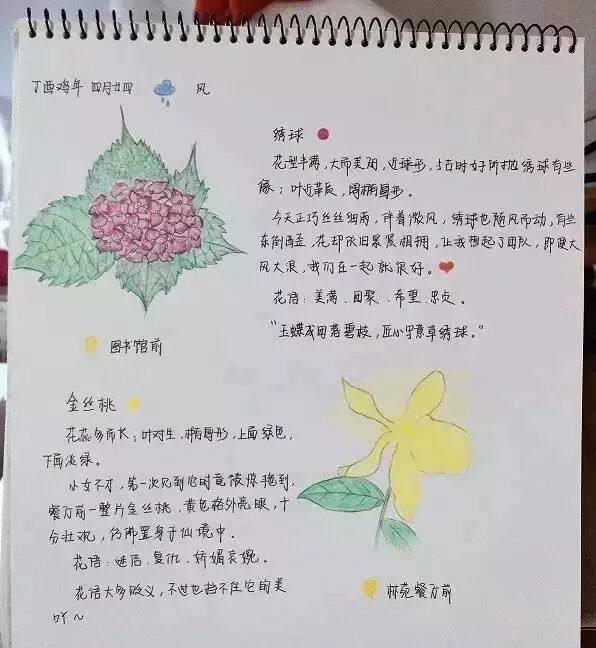 丁酉鸡年 四月廿四 风
绣球
花型丰满,大而美丽,近球形,与古时好所抛绣球有些
像;叶近革质,阔椭圆形。
今天正巧丝丝细雨,伴着微风,绣球也随风而动,有些
东倒西歪,花却依旧紧紧相拥,让我想起了团队,即便大
风大浪,我们在一起就很好。
花语:美满、团聚、希望、忠贞。
"玉蝶成团落碧枝,匠心 草绣球。"
图书馆前
金丝桃
花蕊多而长;叶对生,椭圆形,上面绿色,
下面淡绿。
小女不才,第一次见到它时竟被惊艳到,
餐厅前一整片金丝桃,黄色格外亮眼,十
分壮观,仿佛置身于仙境中。
花语:迷信、复仇、娇媚哀婉。
花语大多贬义,不过也挡不住它的美
吖~
林苑餐厅前